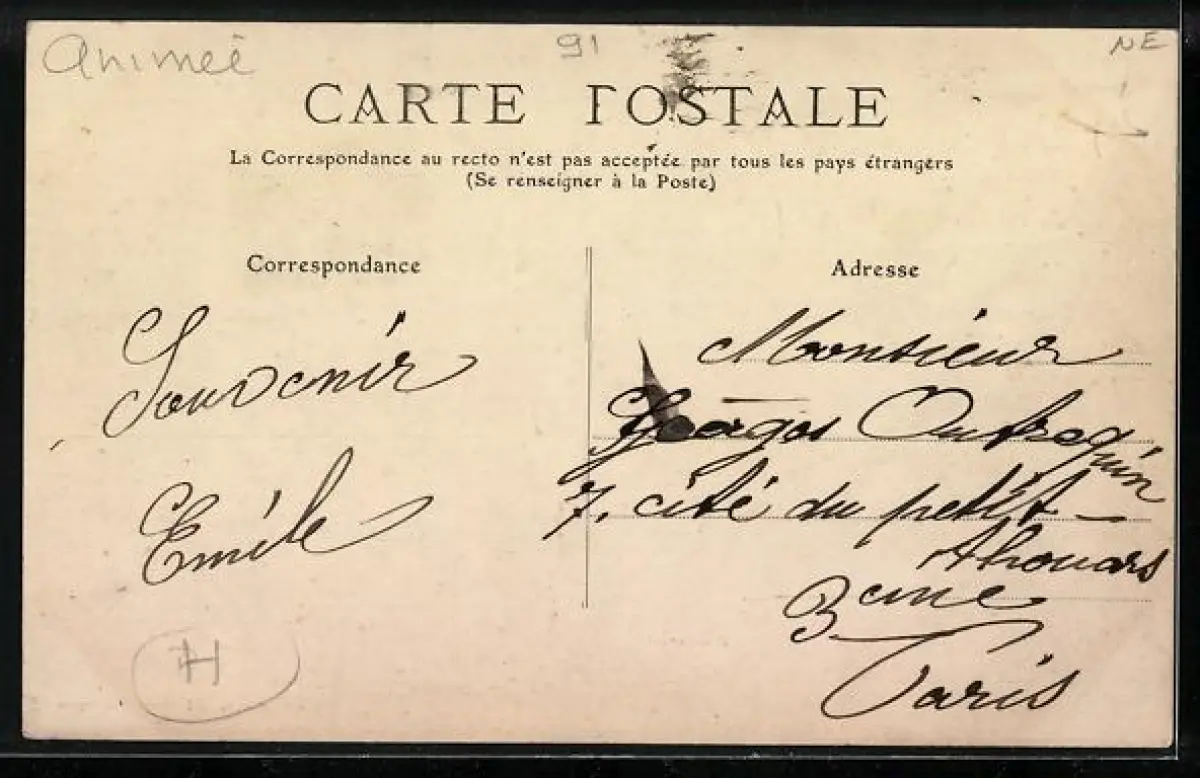 Animée
91
NE
CARTE POSTALE
La Correspondance au recto n'est pas acceptée par tous les pays étrangers
(Se renseigner à la Poste)
Correspondance
Souvenir
Emile
H
Adresse
Monsieur
Georges Outrequin
7, cité du petit-
Thouars
3eme
Paris